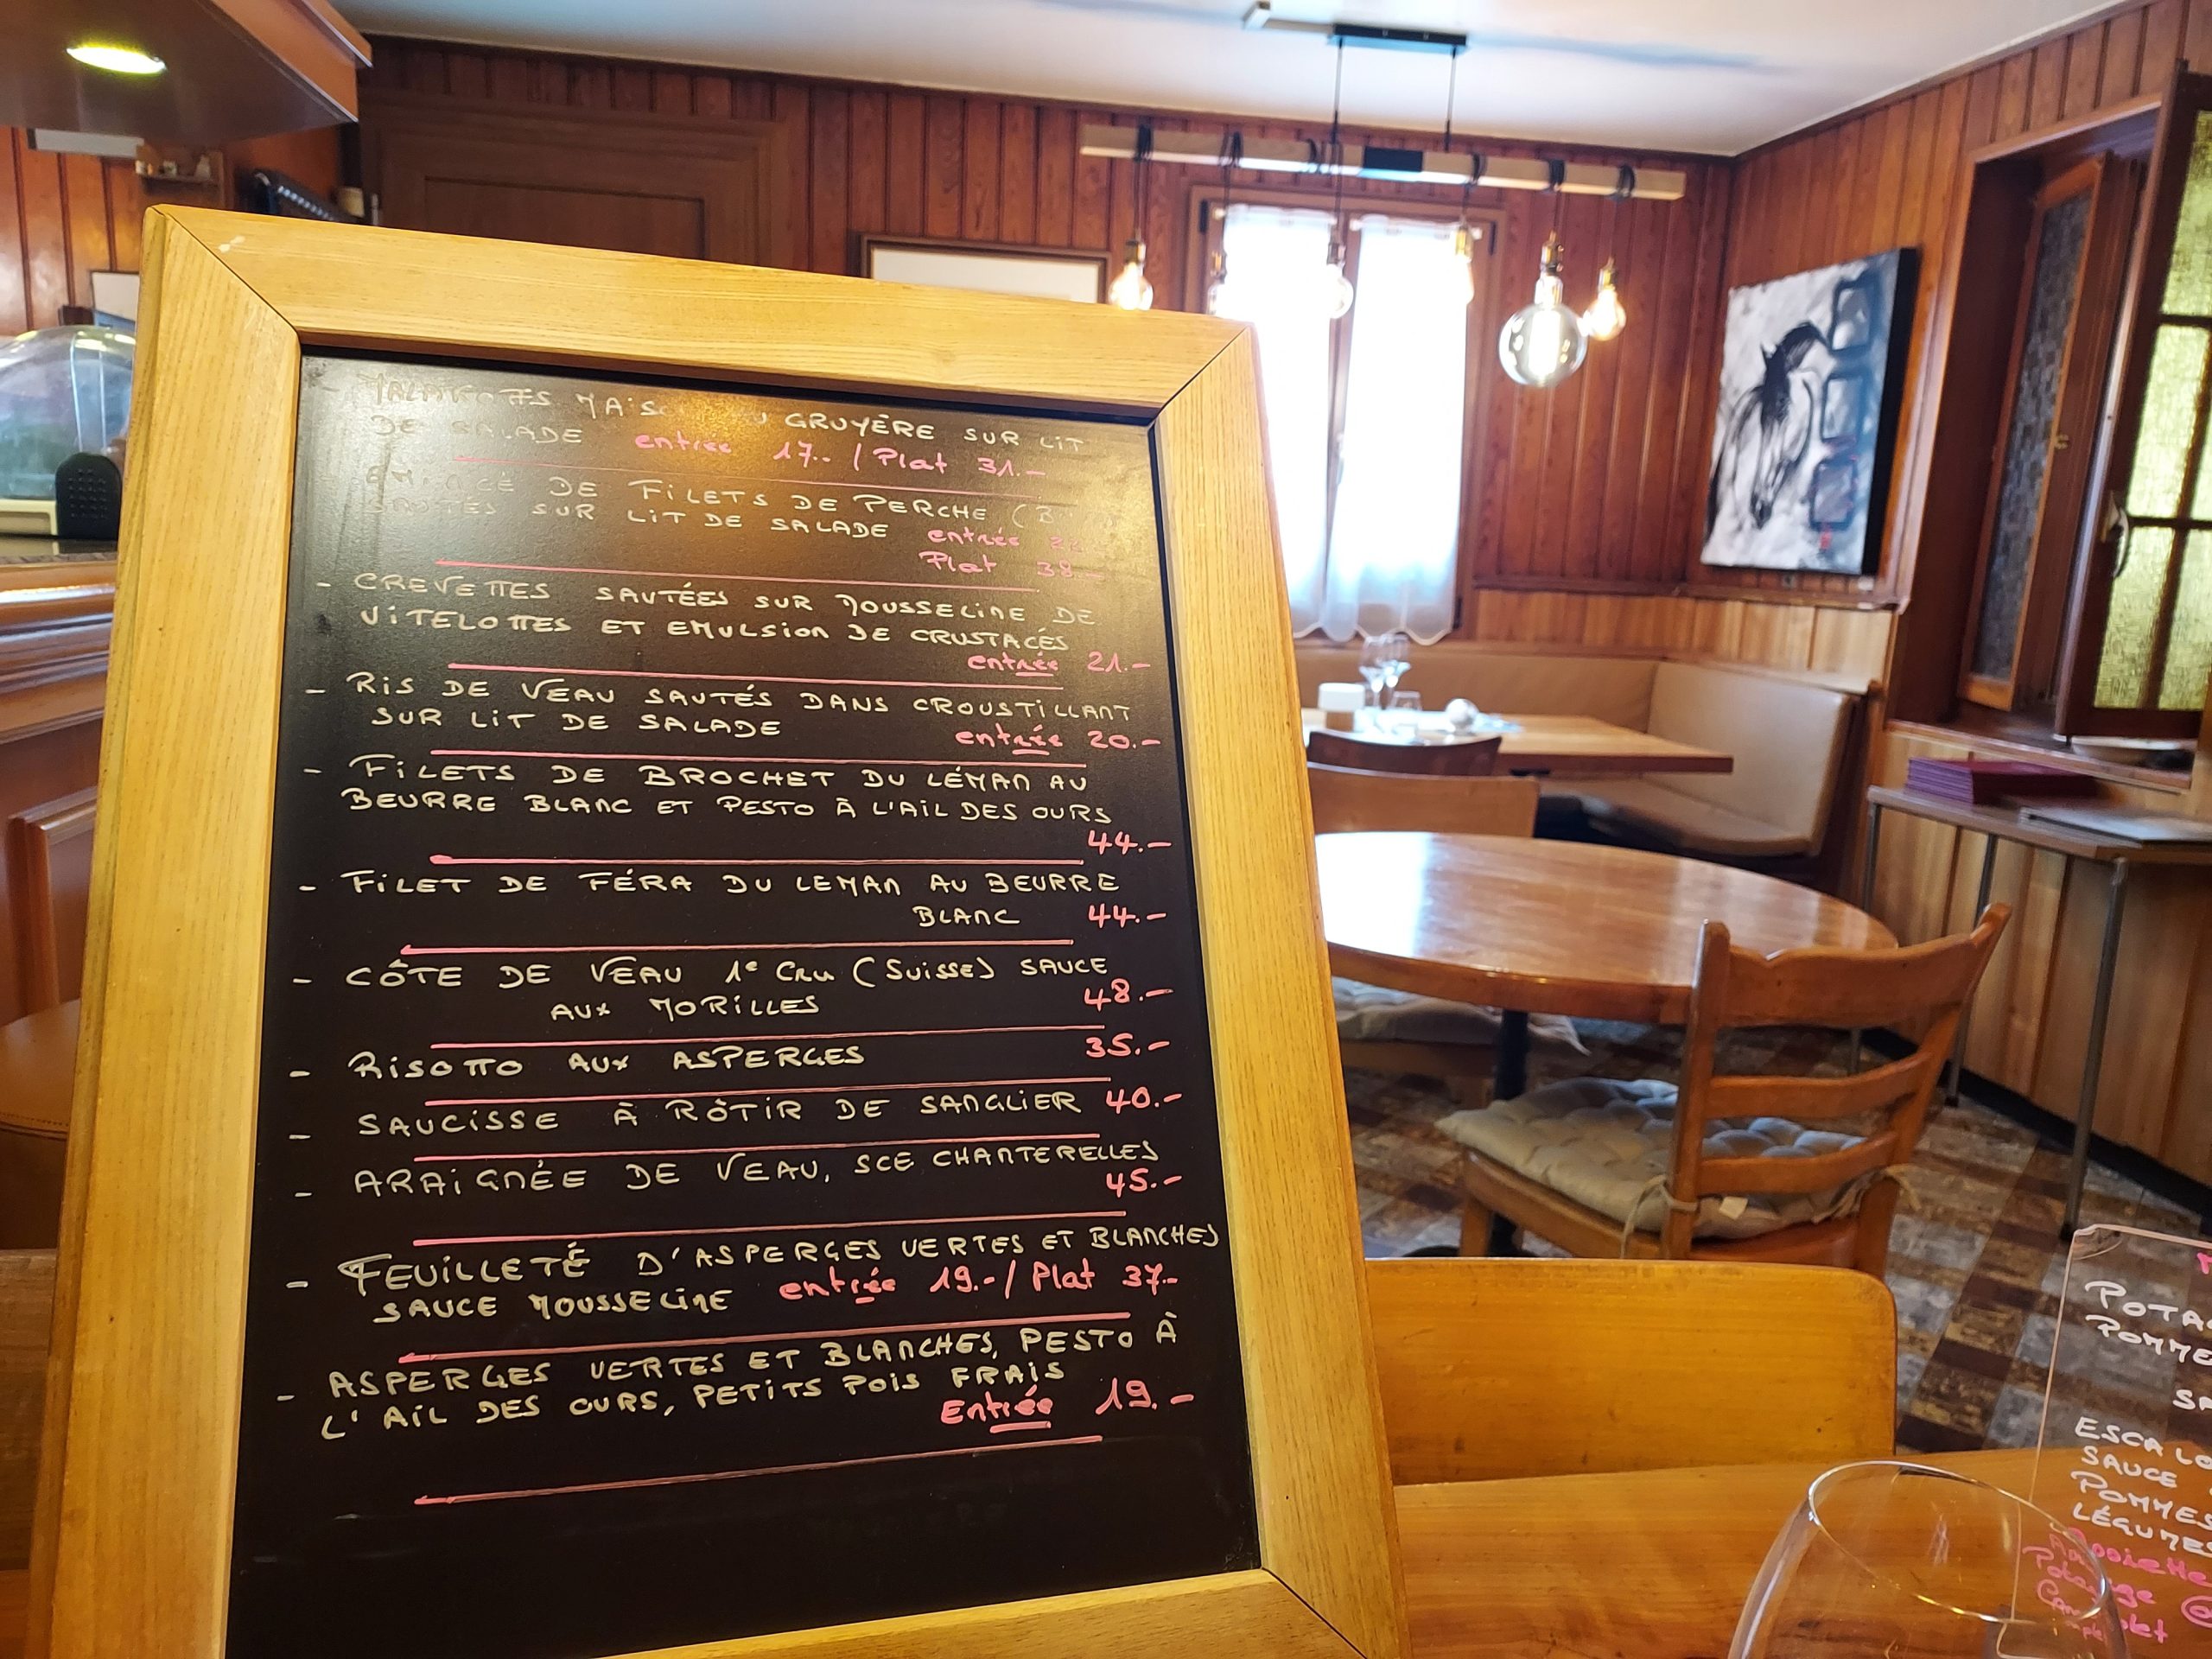 GRUYÈRE SUR LIT
DE SALADE entrée 17.- / Plat 31.-
DE FILETS DE PERCHE
SUR LIT DE SALADE entrée
Plat 38.-
- CREVETTES SAUTÉES SUR MOUSSELINE DE
VITELOTTES ET EMULSION DE CRUSTACÉS
entrée 21.-
- RIS DE VEAU SAUTÉS DANS CROUSTILLANT
SUR LIT DE SALADE entrée 20.-
- FILETS DE BROCHET DU LÉMAN AU
BEURRE BLANC ET PESTO À L'AIL DES OURS
44.-
- FILET DE FÉRA DU LEMAN AU BEURRE
BLANC 44.-
- CÔTE DE VEAU 1e CRU (SUISSE) SAUCE
AUX MORILLES 48.-
- RISOTTO AUX ASPERGES 35.-
- SAUCISSE À RÔTIR DE SANGLIER 40.-
- ARAIGNÉE DE VEAU, SCE CHANTERELLES
45.-
- FEUILLETÉ D'ASPERGES VERTES ET BLANCHES
SAUCE MOUSSELINE entrée 19.- / Plat 37.-
- ASPERGES VERTES ET BLANCHES, PESTO À
L'AIL DES OURS, PETITS POIS FRAIS
Entrée 19.-
SAUCE
POMMES
LÉGUMES